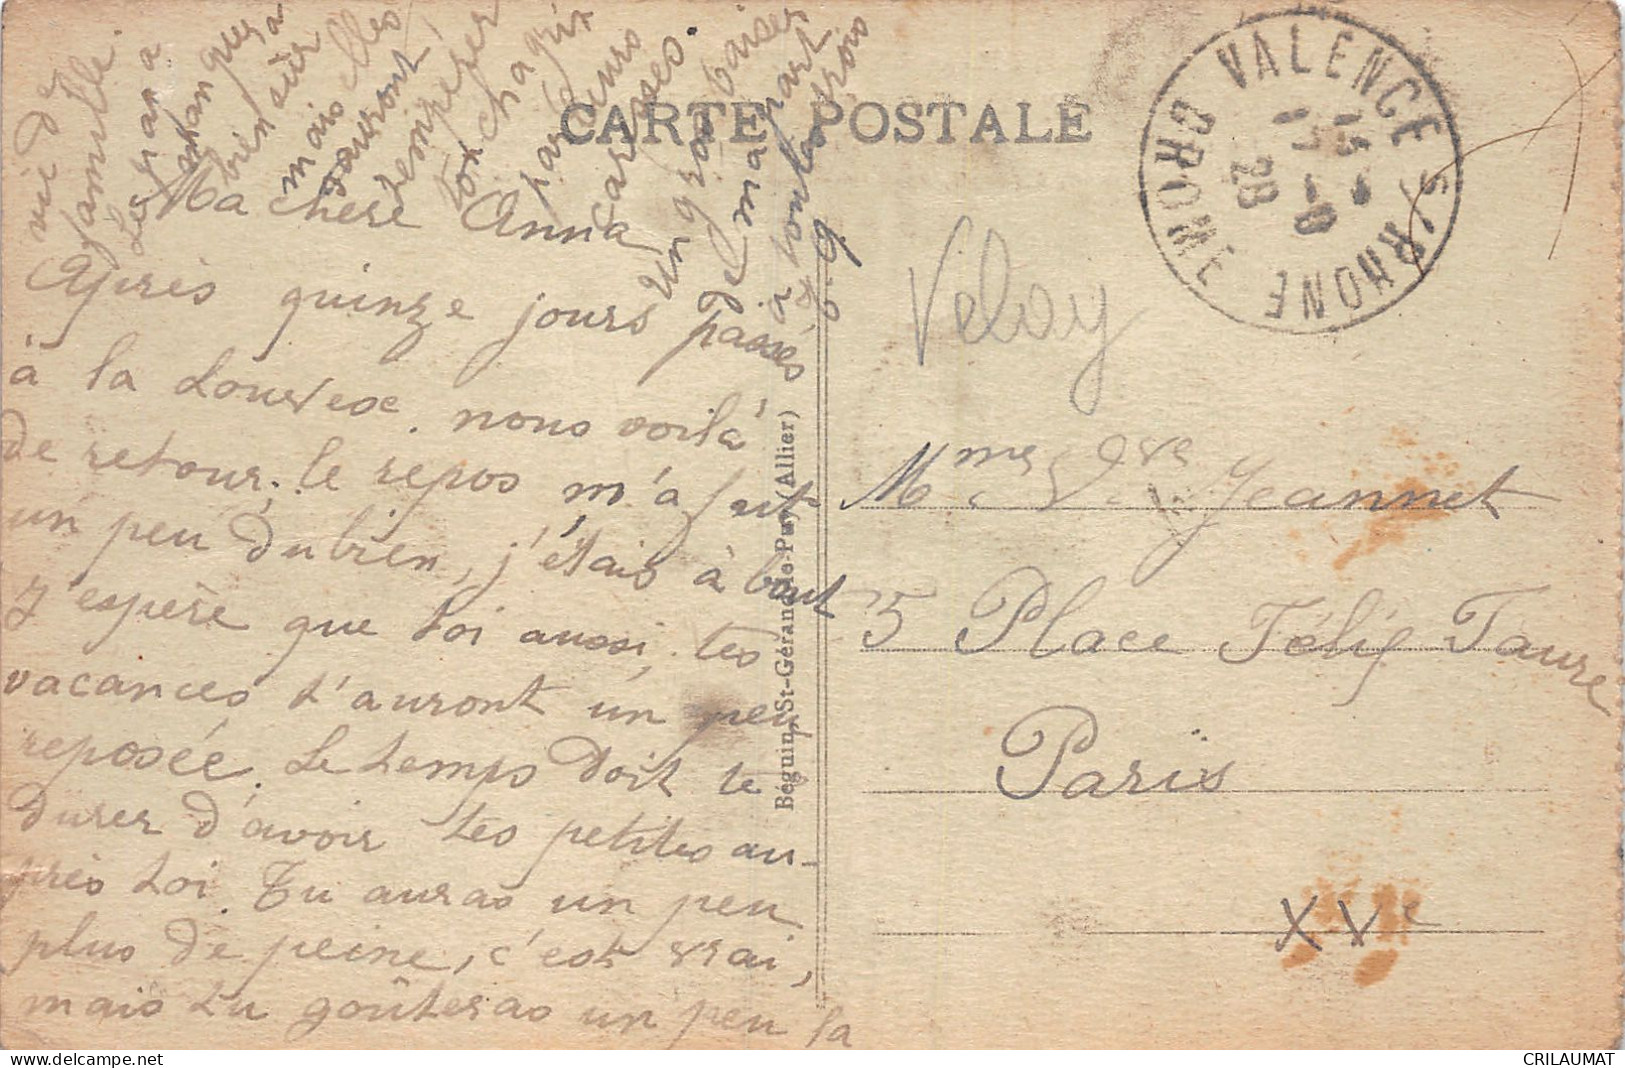 CARTE POSTALE
VALENCE S/RHONE
DROME
15
17 -8
28
Velay
Ma chère Anna
Après quinze jours passés
à la Louvesc. nous voilà
de retour; le repos m'a fait
un peu du bien, j'étais à bout
J'espère que toi aussi, tes
vacances t'auront un peu
reposée. Le temps doit te
durer d'avoir tes petites au-
près toi. Tu auras un peu
plus de peine, c'est vrai,
mais tu goûteras un peu la
vie de
famille.
Le papa
manquera
bien sûr
mais elles
sauront
tempérer
ton chagrin
par leurs
caresses.
Un gros baiser
de ma part
à toutes trois
Mme Vve Jeannet
5 Place Félix Faure
Paris
XVe
Béguin, St-Gérand-le-Puy (Allier)
CRILAUMAT